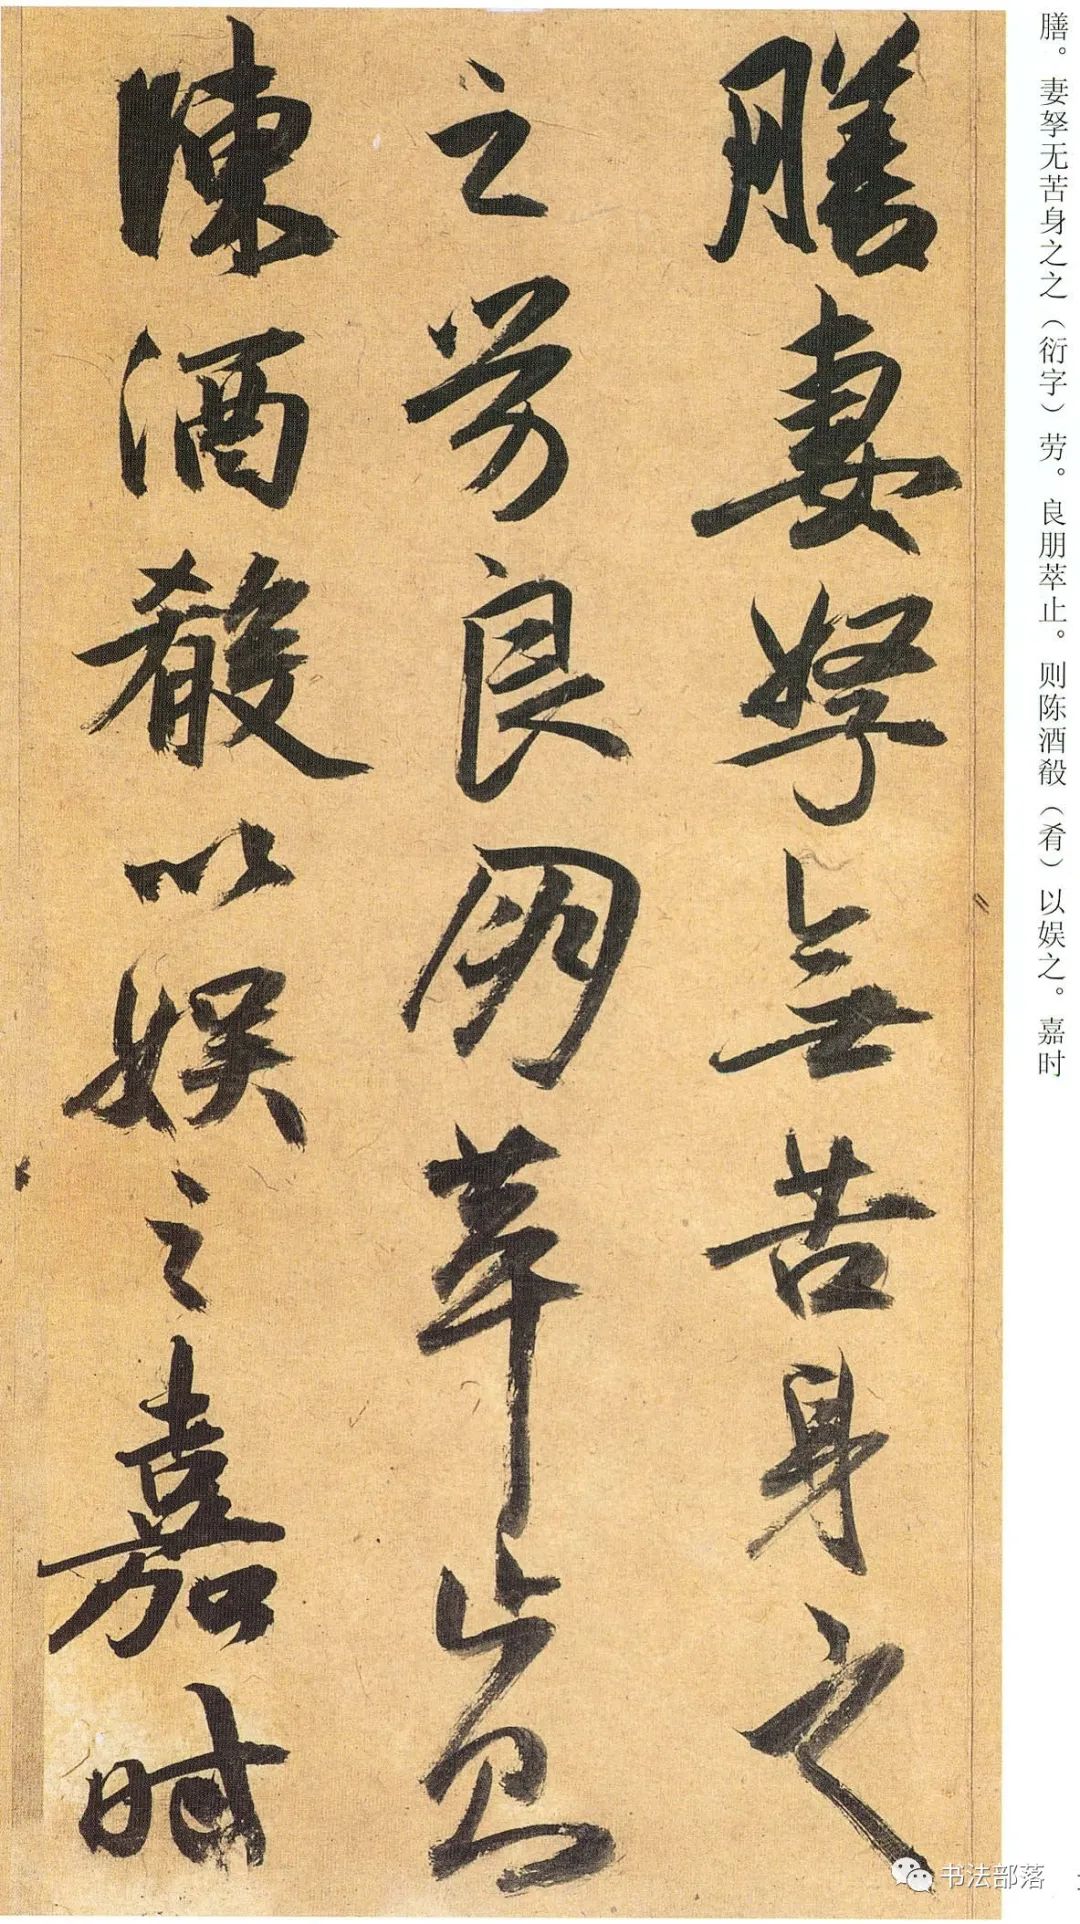 膳。妻孥无苦身之之（衍字）劳。良朋萃止。则陈酒殽（肴）以娱之。嘉时
膳妻孥無苦身之
之劳良朋萃止則
陳酒殽以娱之嘉时
书法部落